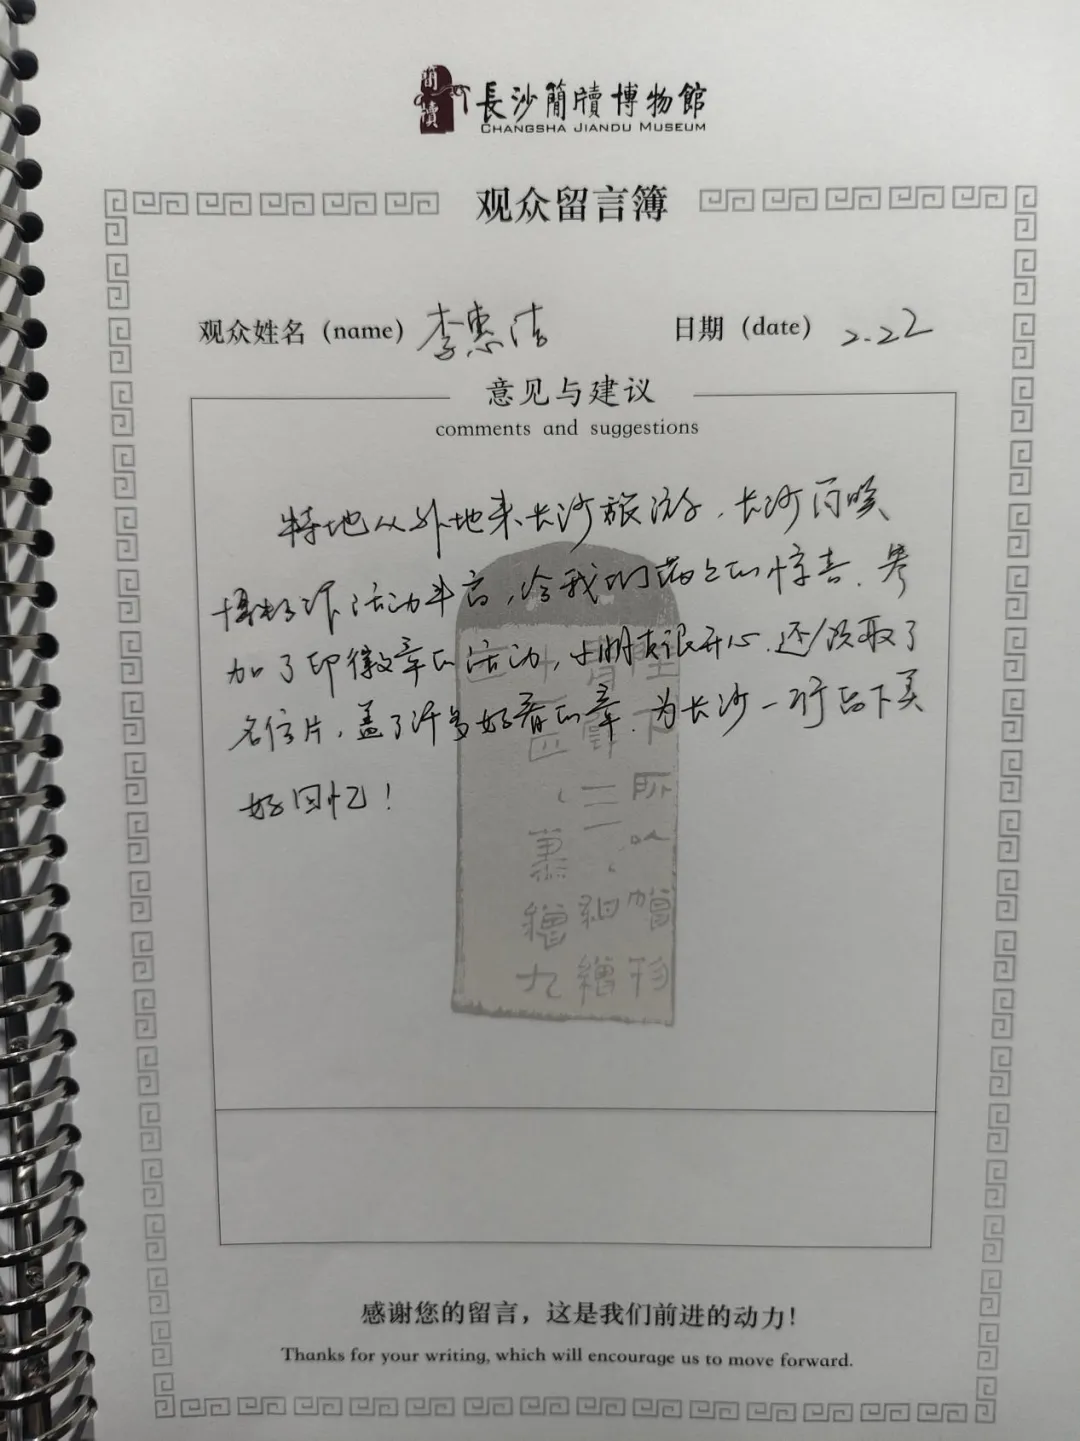 簡牘
長沙簡牘博物館
CHANGSHA JIANDU MUSEUM
观众留言簿
观众姓名（name）李惠洁
日期（date） 2.22
意见与建议
comments and suggestions
特地从外地来长沙旅游，长沙
活动丰富，给我们满满的惊喜.参
加了印徽章的活动，小朋友很开心.还领取了
名信片，盖了许多好看的章.为长沙一行留下美
好回忆！
感谢您的留言，这是我们前进的动力！
Thanks for your writing, which will encourage us to move forward.